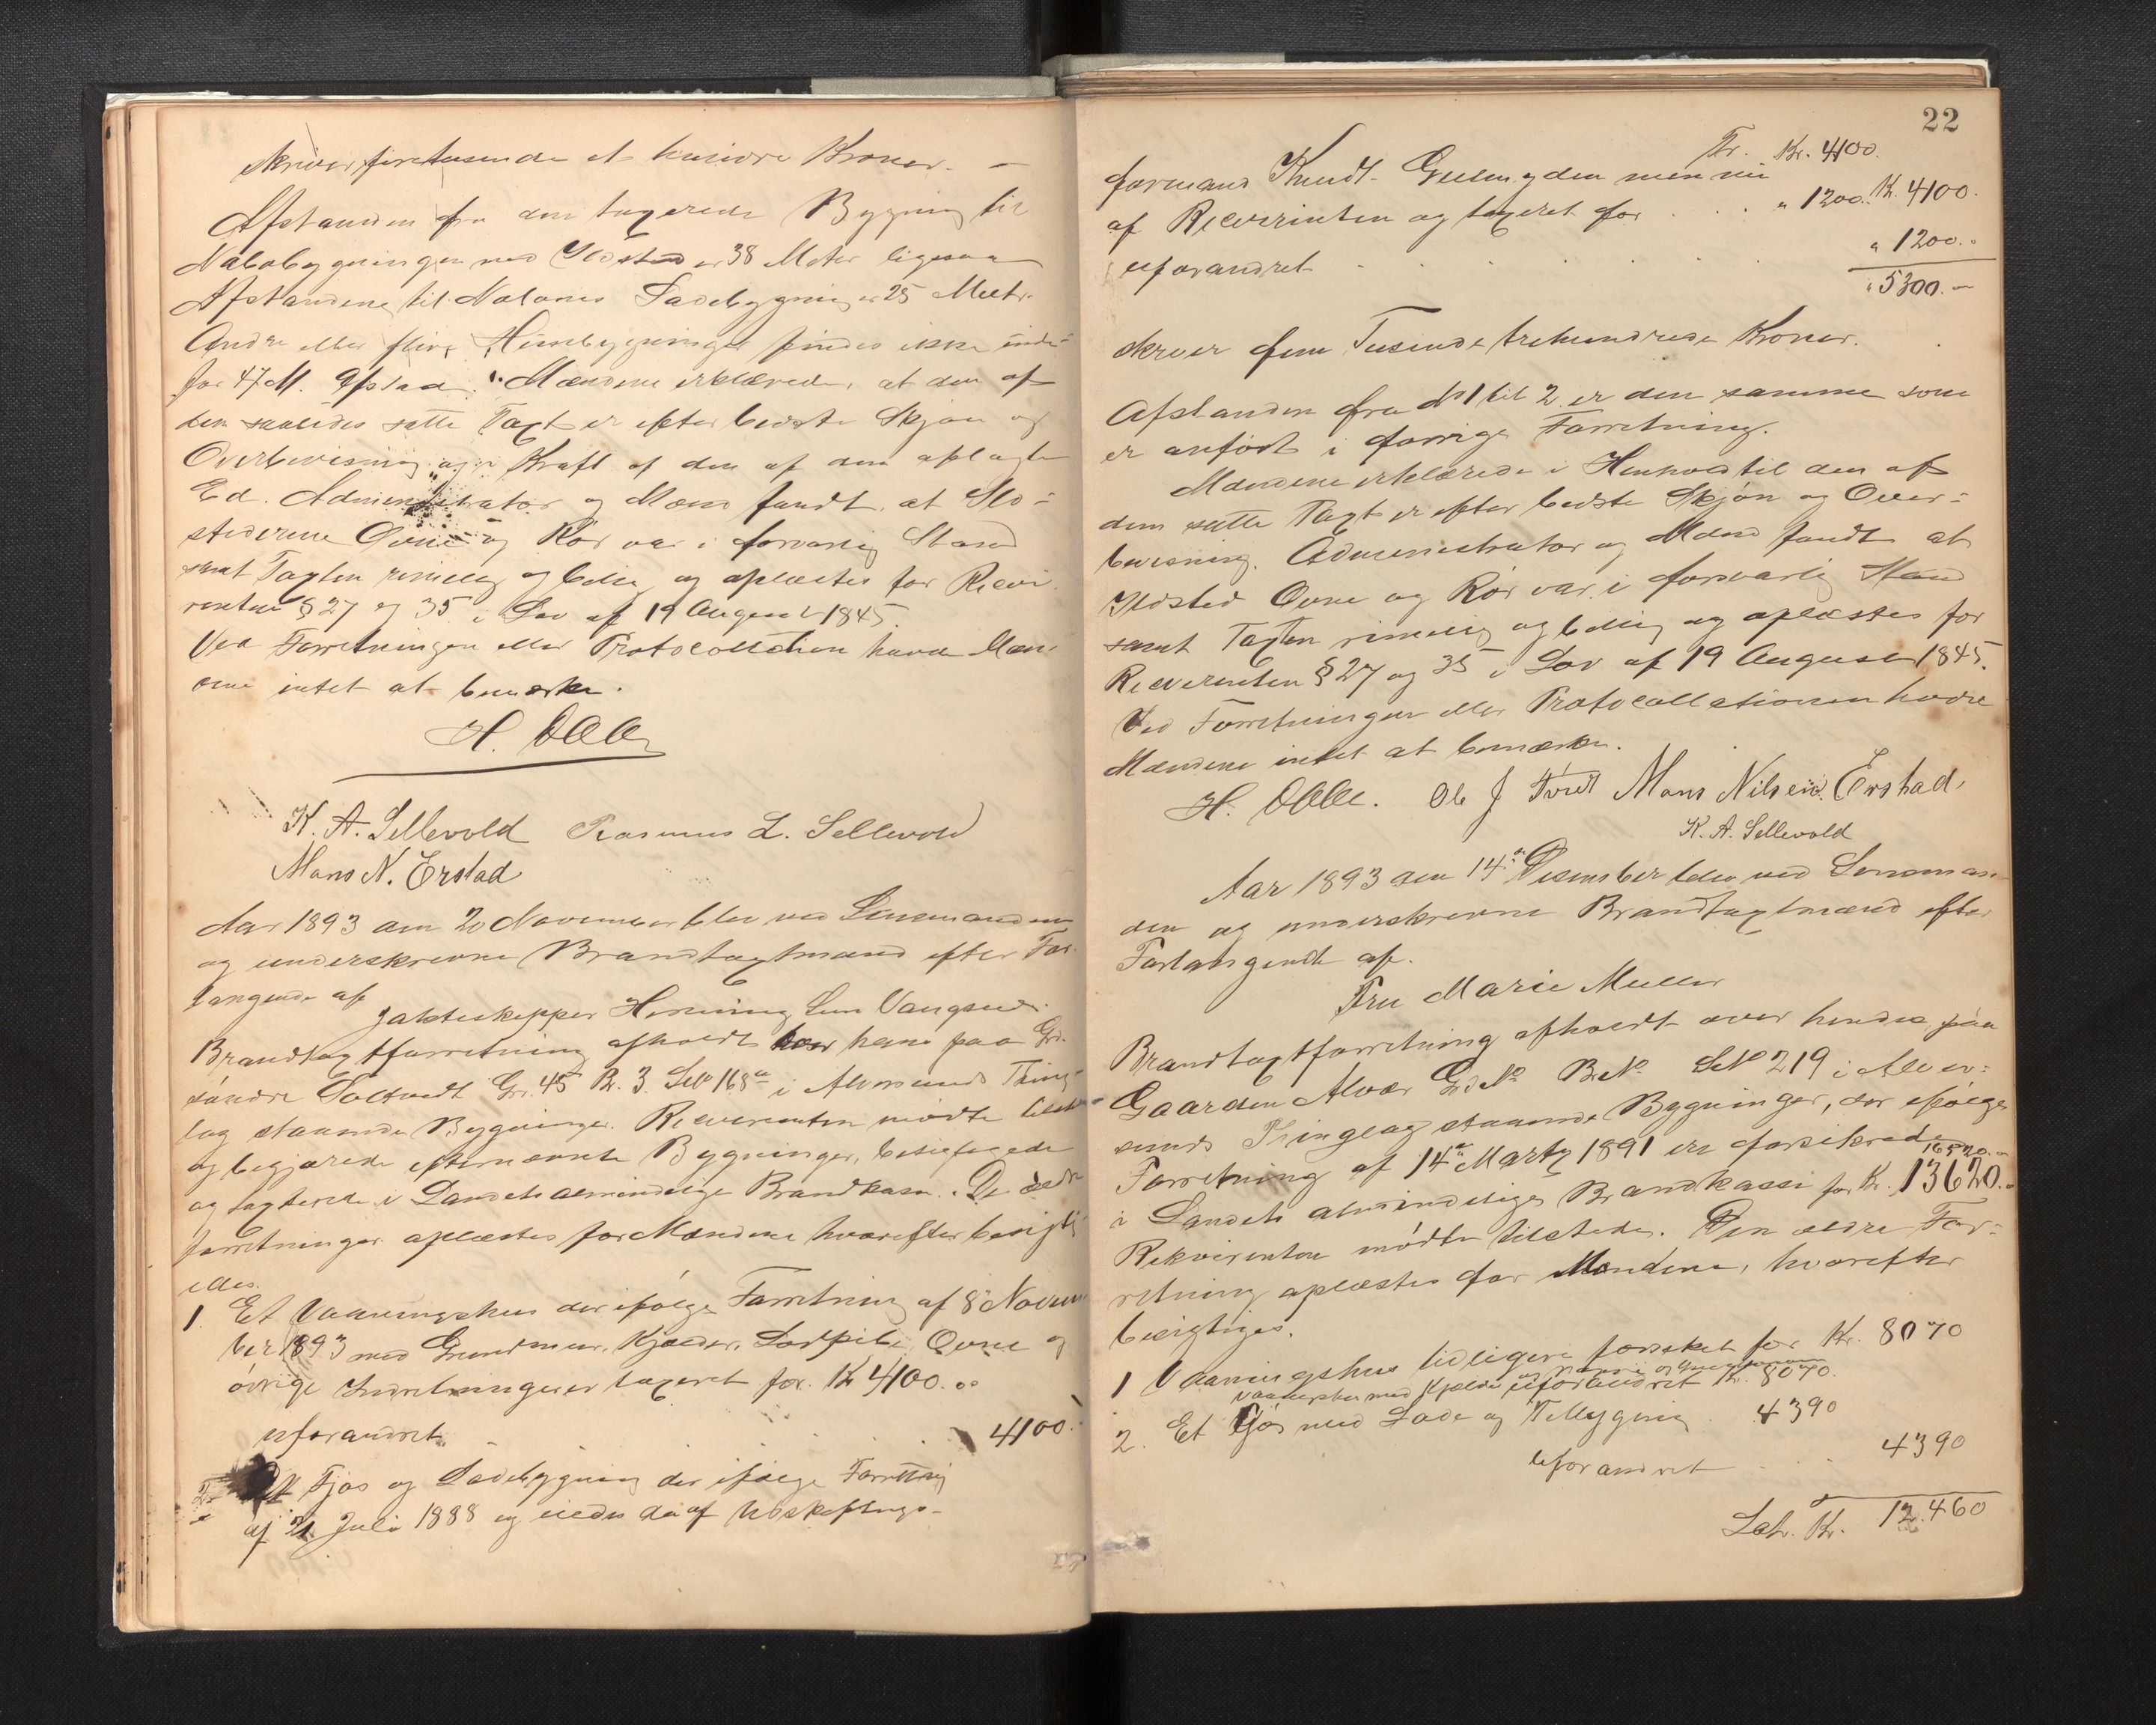 skriver firetusende et hundre Kroner. —
Afstanden fra den taxerede Bygning til
Nabobygningen med Ildsted er 38 Meter ligesaa
Afstandene til Naboens Ladebygning er 25 Meter.
Andre eller flere Huusbygninger findes ikke inden-
for 47 M. Afstand. Mændene erklærede, at den af
dem saaledes satte Taxt er efter bedste Skjøn og
Overbevisning og i Kraft af den af dem aflagte
Ed. Administrator og Mænd fandt, at Ild-
stederne Ovne og Rør var i forsvarlig Stand
samt Taxten rimelig og billig og oplæstes for Rekvi-
renten § 27 og 35 i Lov af 19 August 1845.
Ved Forretningen eller Protocollationen havde Mæn-
dene intet at bemærke.
H.
K. A. Sellevold Rasmus L. Sellevold
Mons N. Erstad
Aar 1893 den 20 November blev ved Lensmanden
og underskrevne Brandtaxtmænd efter For-
langende af
Jakteskipper Henning Vangsund
Brandtaxtforretning afholdt hos ham paa Gd.
søndre Gr. 45 B. 3 LNo 168a i Alversunds Thing-
lag staaende Bygninger. Rekvirenten mødte tilstede
og begjærede efternævnte Bygninger, besigtigede
og taxterede i Landets almindelige Brandkasse. De ældre
forretninger oplæstes for Mændene hvorefter besigti-
edes.
1. Et Vaaningshus der ifølge Forretning af 8 Novem-
ber 1893 med Grundmur, Kjælder, Ovne og
øvrige Indretninger er taxeret for Kr 4100.00
uforandret 4100.
2. Et Fjøs og Ladebygning der ifølge Forretning
af 21 Juli 1888 og eiedes da af Udskiftnings-
22
Tr. Kr. 4100.
formand Knudt men nu
af Rekvirenten og taxeret for . . . " 1200. Kr. 4100.
uforandret . . . . . " 1200.
" 5300.—
skriver fem Tusende trehundrede Kroner.
Afstanden fra No 1 til 2 er den samme som
er anført i forrige Forretning.
Mændene erklærede i Henhold til den af
dem satte Taxt er efter bedste Skjøn og Over-
bevisning. Administrator og Mænd fandt at
Ildsted Ovne og Rør var i forsvarlig Stand
samt Taxten rimelig og billig og oplæstes for
Rekvirenten § 27 og 35 i Lov af 19 August 1845.
Ved Forretningen eller Protocollationen havde
Mændene intet at bemærke.
H. Ole J Mons Nilsen Erstad.
K. A. Sellevold
Aar 1893 den 14de Desember blev ved Lensman-
den og underskrevne Brandtaxtmænd efter
Forlangende af.
Fru Marie Muller
Brandtaxtforretning afholdt over hendes paa
Gaarden Alvær Gd No B No LNo 219 i Alver-
sunds Thinglag staaende Bygninger, der ifølge
Forretning af 14de Marts 1891 er forsikrede
16520.—
i Landets almindelige Brandkasse for Kr. 13620.—
Rekvirenten mødte tilstede. Den ældre For-
retning oplæstes for Mændene, hvorefter
besigtiges.
1 Vaaningshus tidligere forsikret for Kr. 8070
Vaaningshus med Kjælder uforandret Kr. 8070.
2. Et Fjøs med Lade og Tilbygning . 4390
uforandret . . . 4390
Lat. Kr. 12.460